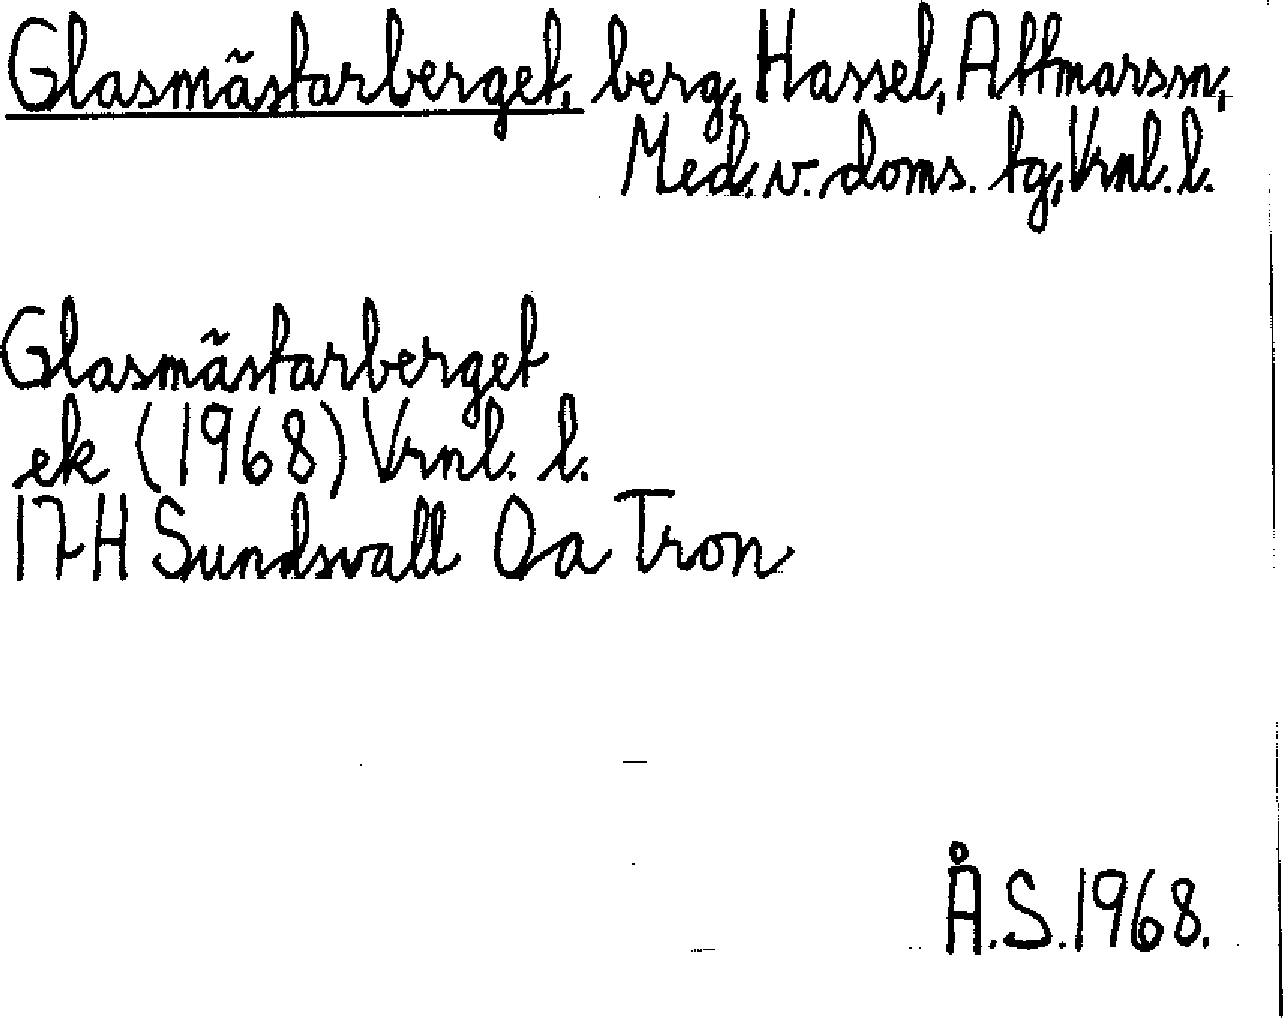 Glasmästarberget, berg, Hassel, Attmarssn,
Med. v. doms. tg, Vrnl. l.
Glasmästarberget
ek (1968) Vrnl. l.
17H Sundsvall 0a Tron
Å.S. 1968.